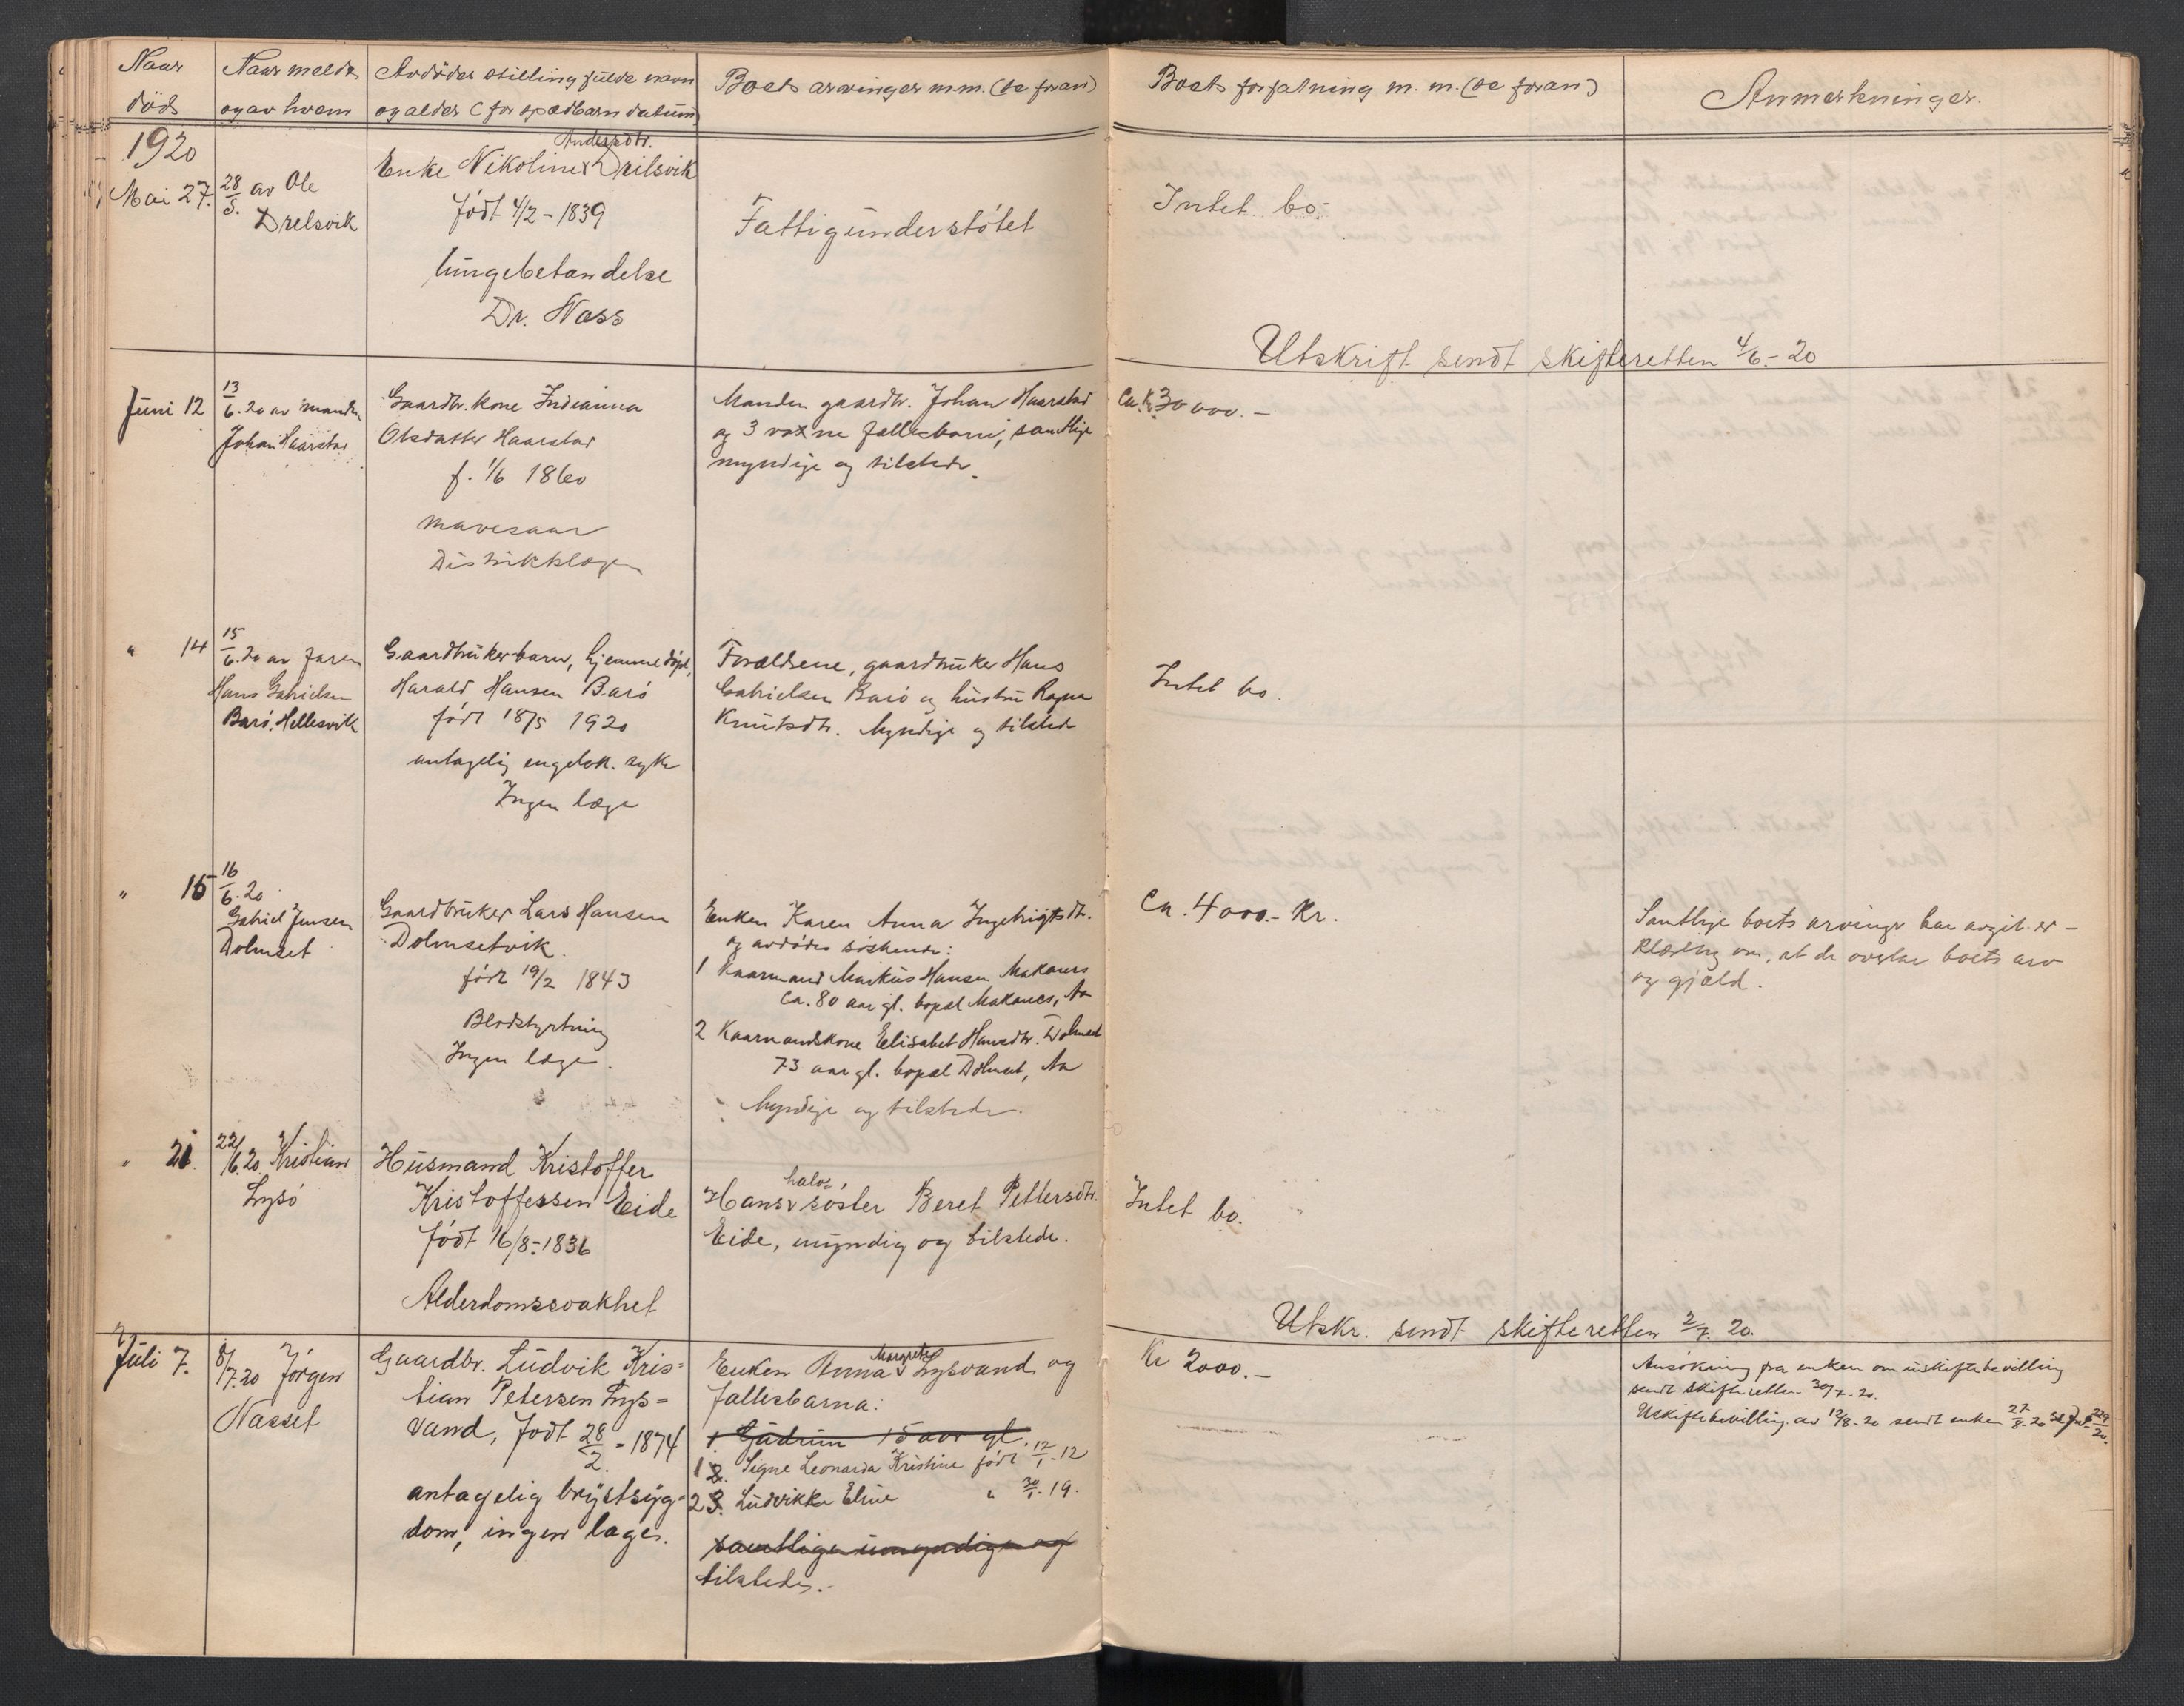 Naar
död
Naar meldt
og av hvem
Avdödes stilling fulde navn
og alder (for spædbarn datum)
Boets arvinger m.m. (se foran)
Boets forfatning m. m. (se foran)
Anmerkninger.
1920
Mai 27.
28/5. av Ole
Drelsvik
Andersdtr.
Enke Nikoline Drilsvik
født 4/2 - 1839
lungebetændelse
Dr. Næss
Fattigunderstøtet
Intet bo.
Utskrift sendt skifteretten 4/6 - 20
Juni 12
13/6. 20 av manden
Johan Haarstad
Gaardbr. kone Indianna
Olsdatter Haarstad
f. 1/6 1860
mavesaar
Distriktslægen
Manden gaardbr. Johan Haarstad
og 3 voxne fællesbarn, samtlige
myndige og tilstede.
Ca. Kr 30 000.-
" 14
15/6. 20 av faren
Hans Gabrielsen
Barö, Hellesvik
Gaardbrukerbarn, hjemmedöpt,
Harald Hansen Barö
född 18/5 1920
antagelig engelsk. syke
Ingen læge
Forældrene, gaardbruker Hans
Gabrielsen Barö og hustru Ragna
Knutsdtr. Myndige og tilstede
Intet bo.
" 15
16/6. 20
Gabriel Jensen
Dolmset
Gaardbruker Lars Hansen
Dolmsetvik.
født 19/2 1843
Blodstyrtning
Ingen læge.
Enken Karen Anna Ingebrigtsdtr.
og avdödes söskende:
1 Kaarmand Markus Hansen Makanes
ca. 80 aar gl. bopæl Makanes,
2 Kaarmandskone Elisabet Hansdtr. Dolmset
73 aar gl. bopæl Dolmset,
Myndige og tilstede.
Ca. 4000.- Kr.
Samtlige boets arvinger har avgit er-
klæring om, at de overtar boets arv
og gjæld.
" 21.
22/6. 20. Kristian
Lysö
Husmand Kristoffer
Kristoffersen Eide
född 16/8 - 1836
Alderdomssvakhet
halv
Hans söster Beret Pettersdtr.
Eide, myndig og tilstede.
Intet bo.
Utskr. sendt skifteretten 2/7. 20.
Juli 7.
8/7. 20 Jørgen
Nasset
Gaardbr. Ludvik Kris=
tian Petersen Lys=
vand, født 28/2. - 1874
antagelig brystsyg=
dom, ingen læge.
Margrete
Enken Anna Lysvand og
fællesbarna:
1. Gudrun 15 aar gl.
1 2. Signe Leonarda Kristine född 12/1 - 12
2 3. Ludvikke Eline " 30/1. - 19.
samtlige umyndige og
tilstede.-
Kr 2000.-
Ansökning fra enken om uskiftebevilling
sendt skifteretten 30/7 - 20.
Uskiftebevilling av 12/8 - 20 sendt enken 27/8 - 20